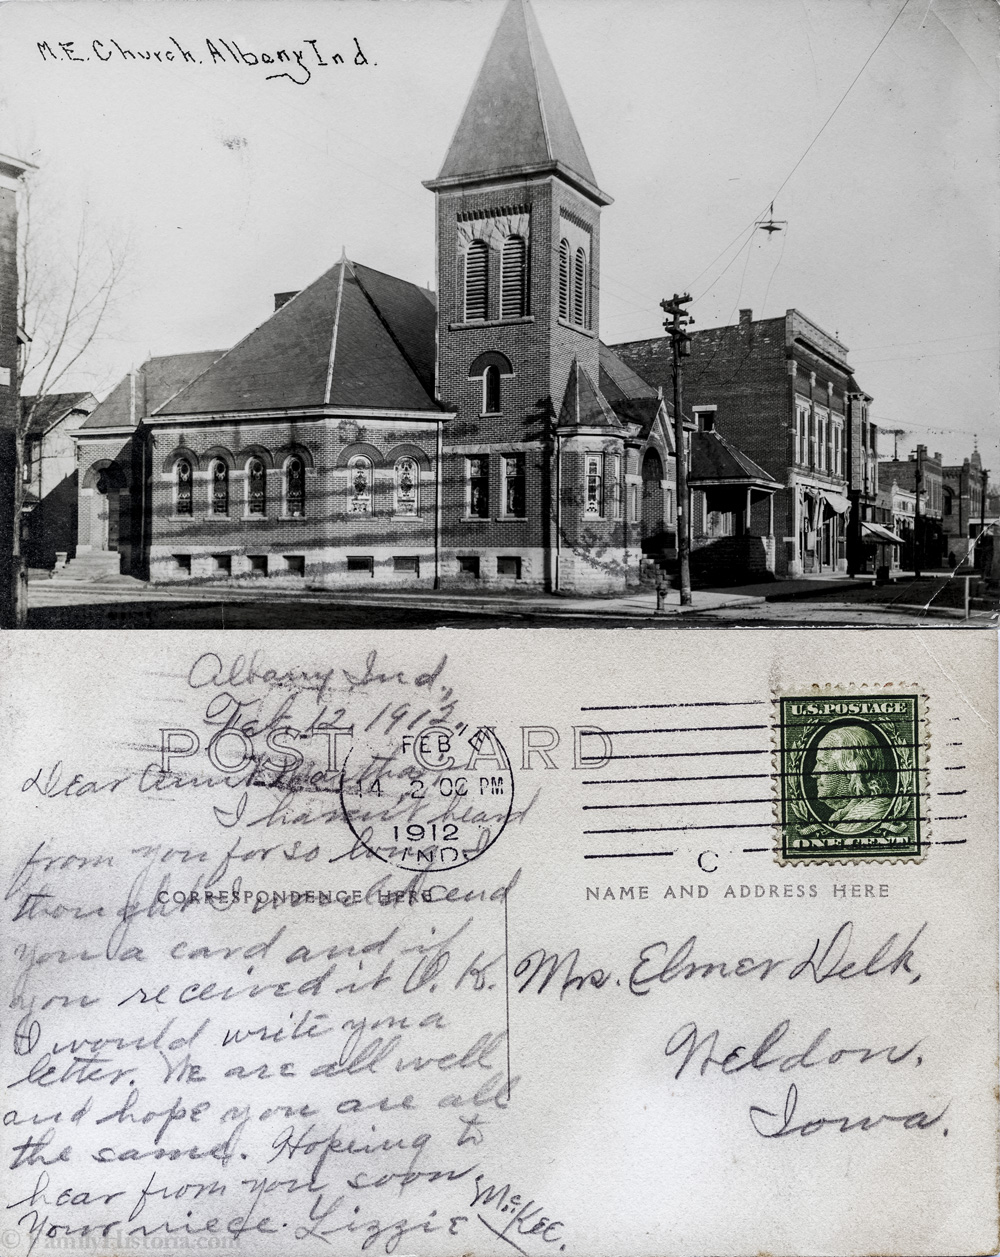 M.E. Church. Albany Ind.
Albany Ind,
Feb. 12, 1912,
POST CARD
FEB
14 2 00 PM
1912
IND.
U.S. POSTAGE
ONE CENT
C
Dear Aunt Martha,
I haven't heard
from you for so long I
thought I would send
CORRESPONDENCE HERE
NAME AND ADDRESS HERE
you a card and if
you received it O.K.
I would write you a
letter. We are all well
and hope you are all
the same. Hopeing to
hear from you soon
Your niece. Lizzie McKee.
Mrs. Elmer Delk,
Weldon,
Iowa.
© FamilyHistoria.com